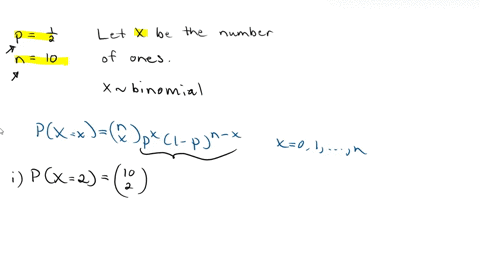 p = 1/2 Let X be the number
n = 10 of ones.
X ~ binomial
P(X=x) = (n x) p^x (1-p)^{n-x} x = 0, 1, ..., n
i) P(X=2) = (10 2)